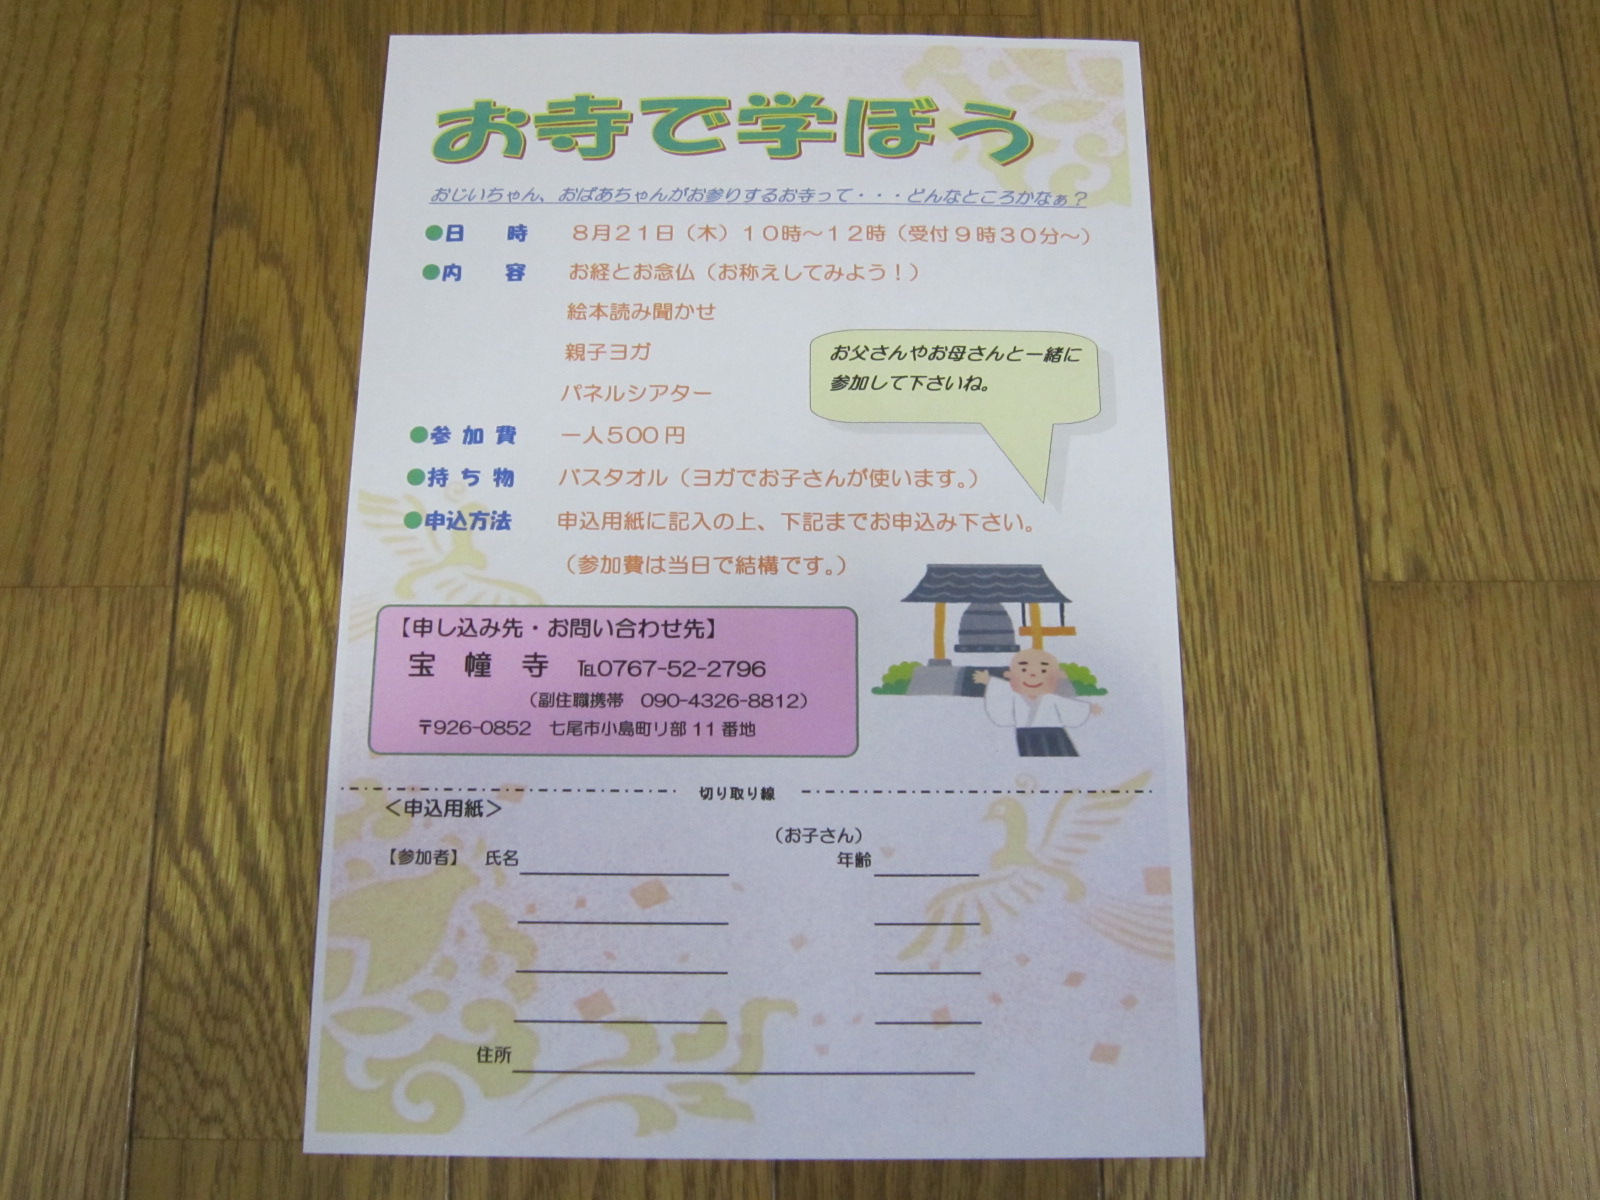 お寺で学ぼう
おじいちゃん、おばあちゃんがお参りするお寺って・・・どんなところかなぁ？
●日　時　８月２１日（木）１０時～１２時（受付９時３０分～）
●内　容　お経とお念仏（お称えしてみよう！）
絵本読み聞かせ
親子ヨガ
パネルシアター
お父さんやお母さんと一緒に
参加して下さいね。
●参加費　一人５００円
●持ち物　バスタオル（ヨガでお子さんが使います。）
●申込方法　申込用紙に記入の上、下記までお申込み下さい。
（参加費は当日で結構です。）
【申し込み先・お問い合わせ先】
宝　幢　寺　℡0767-52-2796
（副住職携帯　090-4326-8812）
〒926-0852　七尾市小島町リ部 11 番地
切り取り線
＜申込用紙＞
（お子さん）
【参加者】　氏名　年齢
住所